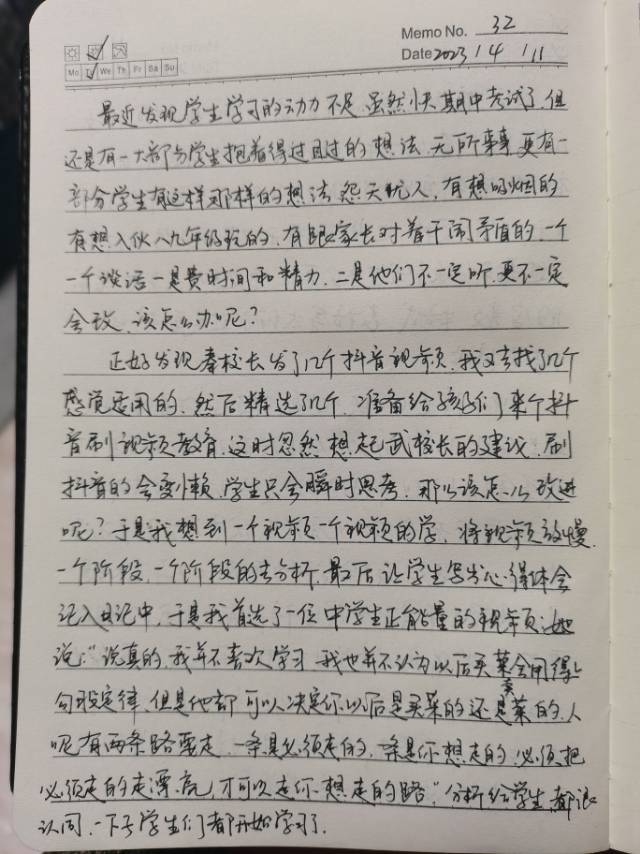 Memo No. 32
Mo Tu We Th Fr Sa Su
Date 2023 / 4 / 11
最近发现学生学习的动力不足,虽然快期中考试了,但
还是有一大部分学生抱着得过且过的想法,无所事事,更有一
部分学生有这样那样的想法,怨天忧人,有想吸烟的
有想入伙八九年级玩的,有跟家长对着干闹矛盾的,一个
一个谈话一是费时间和精力,二是他们不一定听,更不一定
会改,该怎么办呢?
正好发现秦校长发了几个抖音视频,我又去找了几个
感觉适用的,然后精选了几个,准备给孩子们来个抖
音刷视频教育,这时忽然想起武校长的建议,刷
抖音的会变懒,学生只会瞬时思考,那么该怎么改进
呢?于是我想到一个视频一个视频的学,将视频放慢,
一个阶段,一个阶段的去分析,最后让学生写出心得体会
记入日记中,于是我首选了一位中学生正能量的视频:她
说:“说真的,我并不喜欢学习,我也并不认为以后买菜会用得上
勾股定律,但是他却可以决定你以后是买菜的还是卖菜的,人
呢有两条路要走,一条是必须走的,一条是你想走的,必须把
必须走的走漂亮,才可以走你想走的路”,分析给学生,都很
认同,一下子学生们都开始学习了.